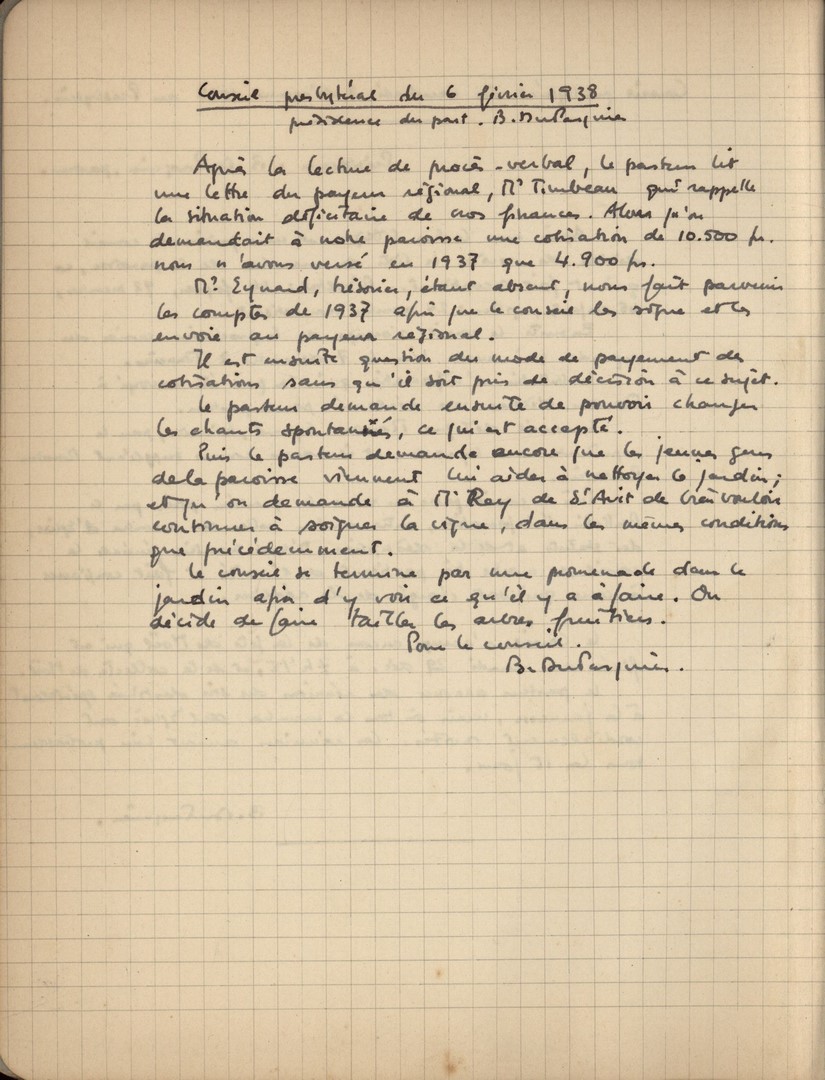 Conseil presbytéral du 6 février 1938
présidence du past. B. DuPasquier
Après la lecture de procès-verbal, le pasteur lit
une lettre du payeur régional, Mr Timbeau qui rappelle
la situation déficitaire de nos finances. Alors qu'on
demandait à notre paroisse une cotisation de 10.500 frs.
nous n'avons versé en 1937 que 4.900 frs.
Mr. Eynard, trésorier, étant absent, nous fait parvenir
les comptes de 1937 afin que le conseil les signe et les
envoie au payeur régional.
Il est ensuite question du mode de payement des
cotisations sans qu'il soit pris de décision à ce sujet.
Le pasteur demande ensuite de pouvoir changer
les chants spontanés, ce qui est accepté.
Puis le pasteur demande encore que les jeunes gens
de la paroisse viennent lui aider à nettoyer le jardin;
et qu'on demande à Mr Rey de St Avit de bien vouloir
continuer à soigner la vigne, dans les mêmes conditions
que précédemment.
Le conseil se termine par une promenade dans le
jardin afin d'y voir ce qu'il y a à faire. On
décide de faire tailler les arbres fruitiers.
Pour le conseil.
B. DuPasquier.